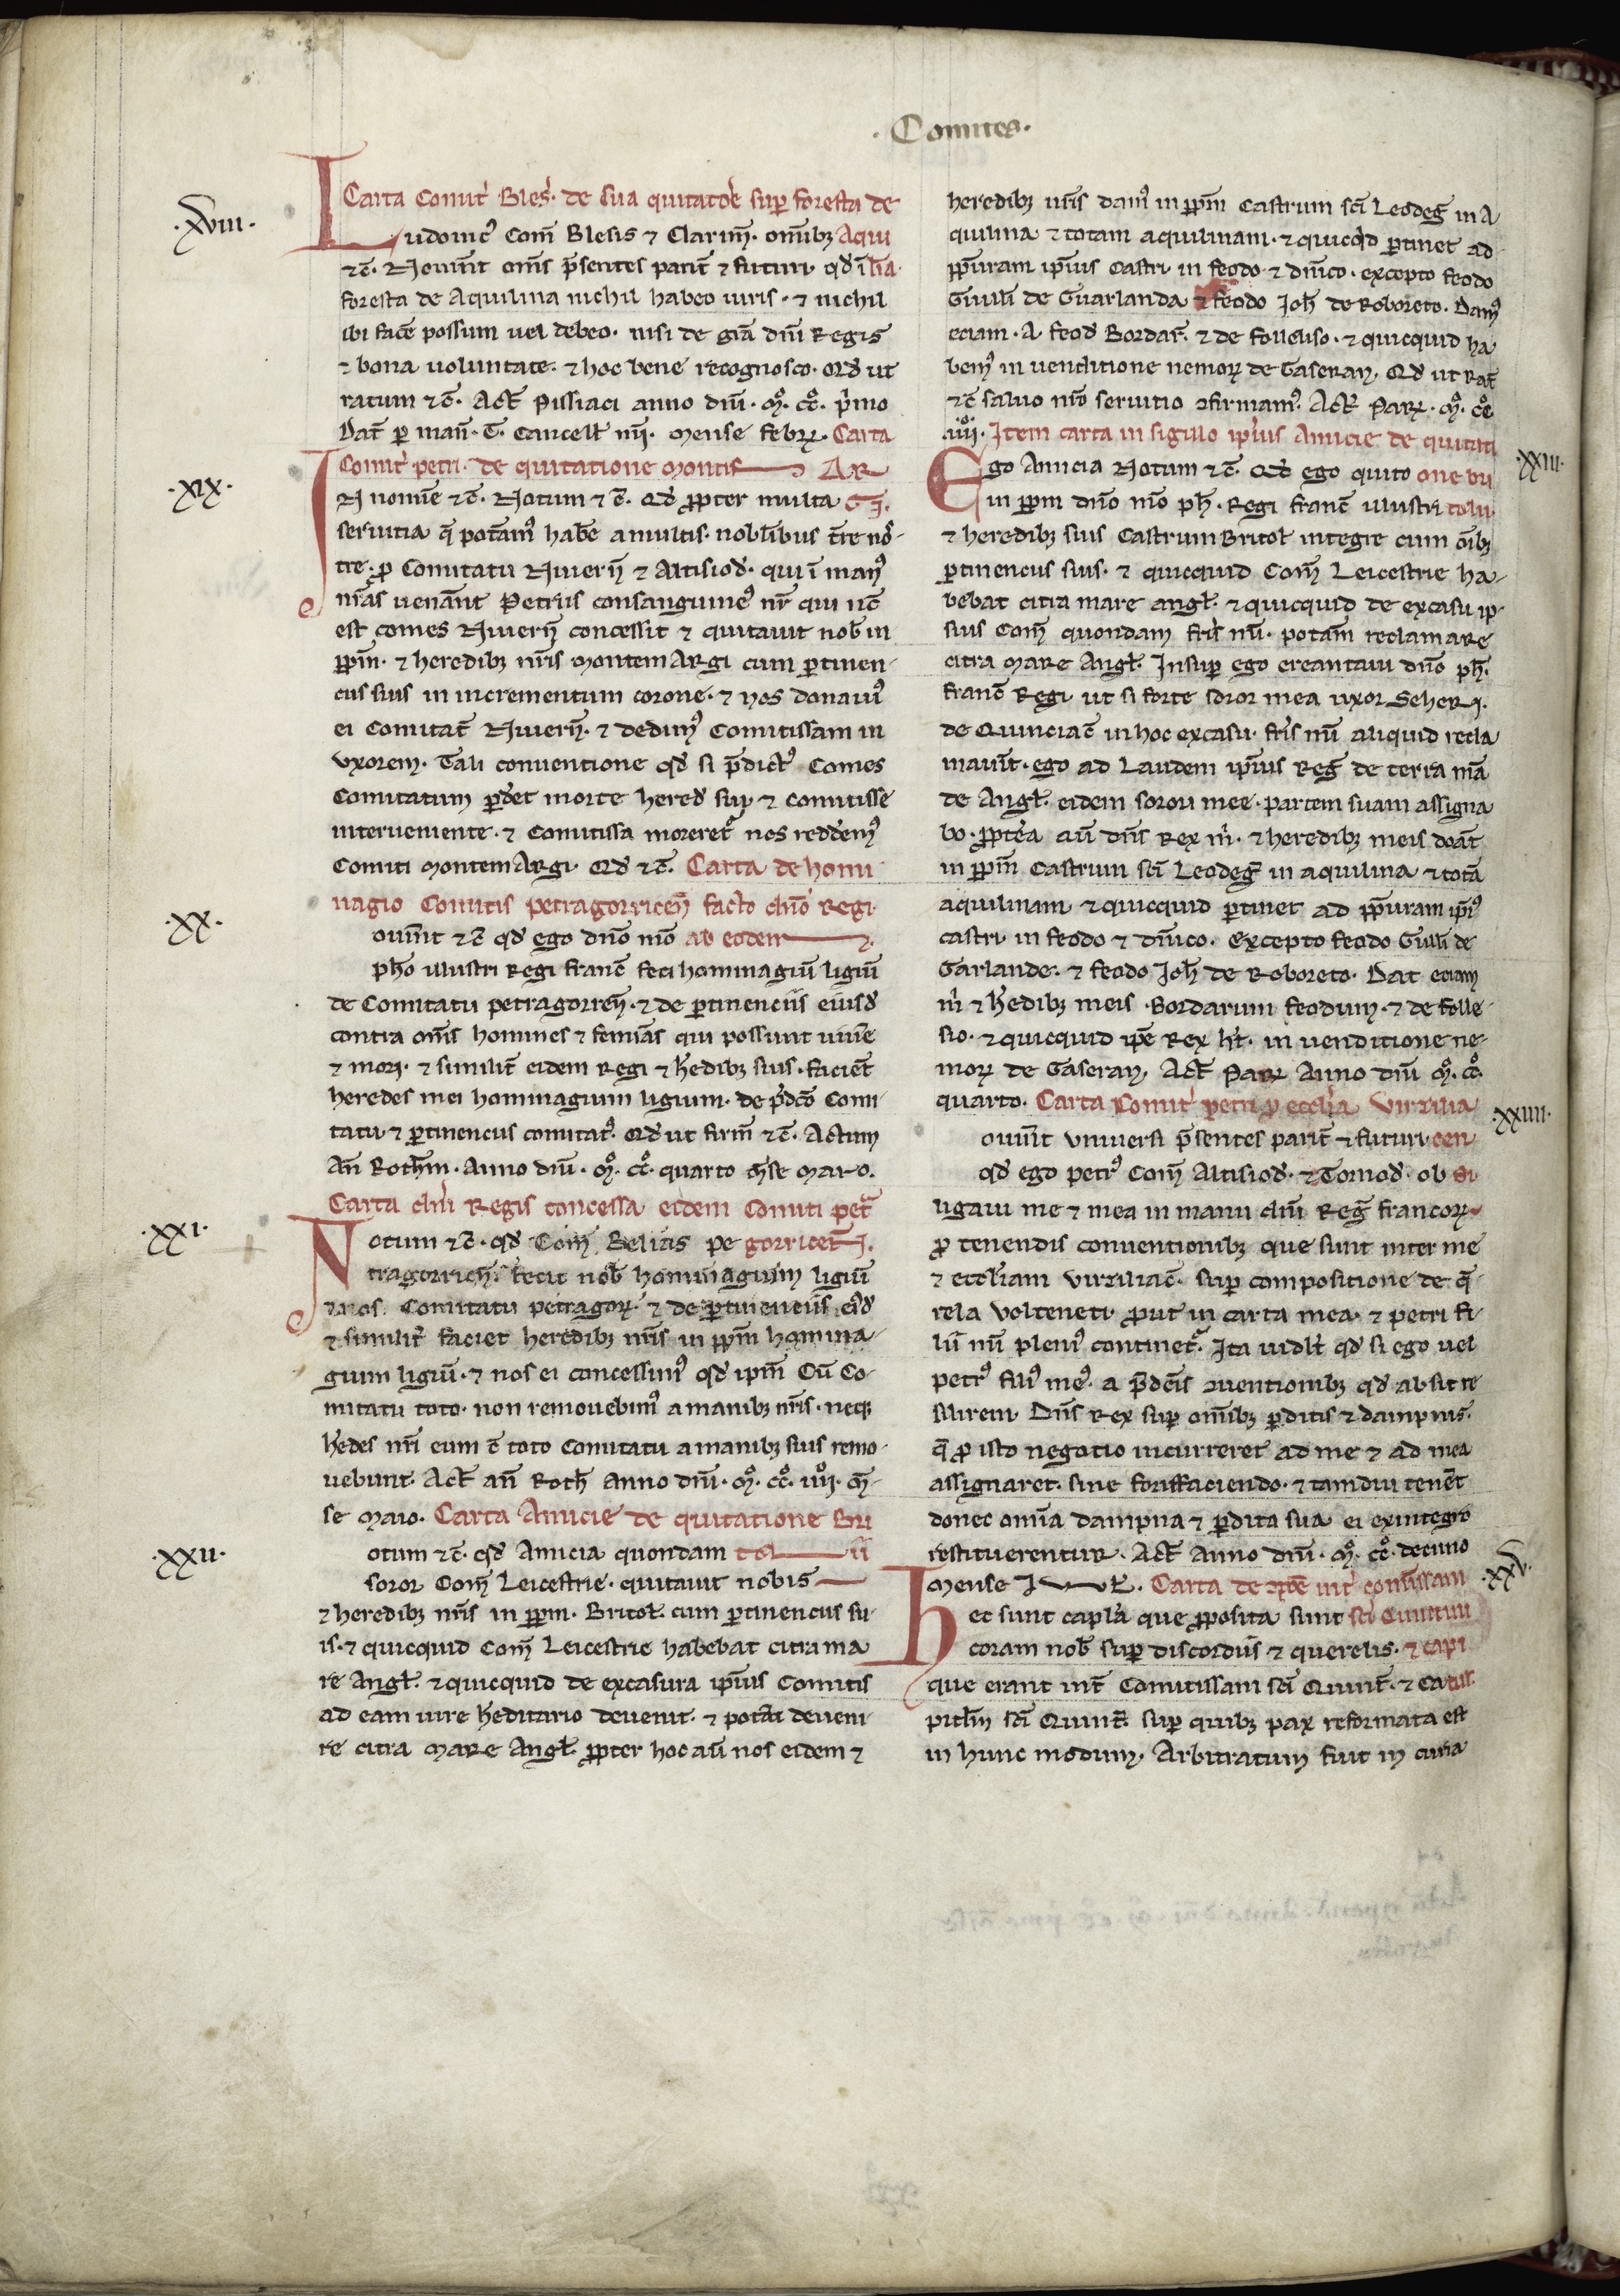 ·Comites·
·xviii·
Carta Comit̉ Bles̉· de sua quitatōe sup̱ foresta de
Ludouic᷒ Com̄ Blesis ⁊ Clarim̄· omībꝫ Aqui
⁊c̄· Nouīnt om̄s p̄sentes parit̄ ⁊ futuri qd̓ ī līa·
foresta de Aquilina nichil habeo iuris · ⁊ nichil
ibi facē possum uel debeo· nisi de grā dn̄i Regis
⁊ bona uoluntate· ⁊ hoc bene recognosco· Qd̓ ut
ratum ⁊c̄· Act̄ Pissiaci anno dn̄i · ᴍ̊· cc̊· p̓mo
Dat̄ p̱ man̄· G· Cancell̄ nr̄i· mense febrꝝ· Carta
·xix·
Comit̉ petri· de quitatione montis AR
IN nomīe ⁊c̄· Notum ⁊c̄· Qd̓ ꝓpter multa GI·
seruitia q̄ potam᷒ habē a multis· nobīlibus t̄re no·
tre· ꝓ Comitatu Niuern̄ ⁊ Altisiod̓· qui ī man᷒
nr̄as uenānt Petrus consanguine᷒ nr̄ qui nc̄
est comes Niuern̄ concessit ⁊ quitauit nob̄ in
ꝑpm̄· ⁊ heredibꝫ nr̄is montem Argi cum ꝑtinen·
ciis suis in incrementum corone· ⁊ nos donauim᷒
ei Comitat̄ Niuern̄· ⁊ dedim᷒ Comitissam in
vxorem· Tali conuentione qd̓ si p̄dict᷒ Comes
Comitatum ꝑdet morte hered̓ sup̱ ⁊ comitisse
interueniente· ⁊ Comitissa moreret᷑ nos reddem᷒
Comiti montem Argi Qd̓ ⁊c̄· Carta de homi
·xx·
nagio Comitis petragorricen̄ facto dn̄o Regi
ouīnt ⁊c̄ qd̓ ego dn̄o mō ab eodem
ph̄o illustri Regi franc̄ feci hominagiū ligiū
de Comitatu petragorren̄· ⁊ de ꝑtinenciis eiusd̓
contra om̄s homines ⁊ femīas qui possunt uiuē
⁊ mori· ⁊ similit̄ eidem Regi ⁊ h̄edibꝫ suis· facient̄
heredes mei hominagium ligium· de p̄dc̄o Comi
tatu ⁊ ꝑtinenciis comitat᷒· Qd̓ ut firm̄ ⁊c̄· Actum
An̄ Roth̄m· Anno dn̄i· ᴍ̊· cc̊· quarto m̄se Maio·
Carta dn̄i Regis concessa eidem Comiti pet᷑
·xxi·
Notum ⁊c̄· qd̓ Com̄ Belias pe gorricen̄·
tragorricn̄· fecit nob̄ hominagium ligiū
Comitatu petragorꝝ· ⁊ de ꝑtinenciis ei᷒d̓
⁊ similit̉ faciet heredibꝫ nr̄is in ꝑpm̄ homina
gium ligiū· ⁊ nos ei concessim᷒ qd̓ ipm̄ Cū Co·
mitatu toto· non remouebim᷒ a manibꝫ nr̄is· necꝫ
h̄edes nr̄i eum c̄ toto Comitatu a manibꝫ suis remo·
uebunt· Act̄ an̄ Roth̄ Anno dn̄i· ᴍ̊· cc̊· iiii̊· m̄·
se Maio· Carta Amicie de quitatione Bri
·xxii·
otum ⁊c̄· qd̓ Amicia quondam to lii
soror Com̄ Leicestrie· quitauit nobis
⁊ heredibꝫ nr̄is in ꝑpm· Britol̄· cum ꝑtinenciis su·
is· ⁊ quicquid Com̄ Leicestrie habebat citra ma
re Angl̄· ⁊ quicquid de excasura ipīus Comitis
ad eam iure h̄editario deuenit· ⁊ potāt deueni·
re citra mare Angl̄· ꝓpter hoc aū nos eidem ⁊
heredibꝫ nr̄is dam᷒ in ꝑpm̄ Castrum sc̄i Leodeḡ in A
quilina ⁊ totam aquilinam· ⁊ quicq̓d ꝑtinet ad
ꝑpꝛuram ipīus Castri· in feodo ⁊ dn̄ico· excepto feodo
Guill̄i de Guarlanda ⁊ feodo Joh̄ de Roboreto· Dam᷒
eciam· A feod̓ Bordar̄· ⁊ de folleuso· ⁊ quicquid ha
bem᷒ in uenditione nemorꝝ de Gaseran, Qd̓ ut Rat̄
⁊c̄ saluo nr̄o seruitio ꝯfirmam᷒· Act̄ Parꝝ· ᴍ̊· cc̊
iiii̊· Item carta in sigillo ipīus Amicie de quitati
·xxiii·
Ego Amicia Notum ⁊c̄· Qd̓ ego quito one bri
in ꝑpm dn̄o mō ph̄· Regi franc̄ illustri tolii·
⁊ heredibꝫ suis Castrum Britol̄ integre cum oībꝫ
ꝑtinenciis suis· ⁊ quicquid Com̄ Leicestrie ha·
bebat citra mare angl̄· ⁊ quicquid de excasu ip·
sius Com̄ quondam fr̄is mī· potam reclamare
citra mare Angl̄· Insup̱ ego creantaui dn̄o ph̄·
franc̄ Regi ut si forte soror mea vxor Seheri·
de Quinciac̄ in hoc excasu· fr̄is mī aliquid recla
mauīt· ego ad Laudem ipīus Reḡ de terra mā
de Angl̄· eidem sorori mee· partem suam assigna
bo· ꝓpt̉ea aū dn̄s Rex m̓· ⁊ heredibꝫ meis doāt
in ꝑpm̄ Castrum sc̄i Leodeḡ in aquilina ⁊ totā
aquilinam ⁊ quicquid ꝑtinet ad ꝑpꝛuram ipi᷒
castri in feodo ⁊ dn̄ico· Excepto feodo Guill̄i de
Garlande· ⁊ feodo Joh̄ de Roboreto· Dat eciam
m̓ ⁊ h̄edibꝫ meis· Bordarum feodum· ⁊ de folle·
so· ⁊ quicquid ipē Rex ht̄· in uenditione ne·
morꝝ de Gaseran, Act̄ Parꝝ Anno dn̄i ᴍ̊· cc̊·
quarto· Carta Comit̉ petri ꝓ eccl̄ia Virzilia
·xxiiii·
ouīnt vniuersi p̄sentes parit̄ ⁊ futuri cen
qd̓ ego petr᷒ Com̄ Altisiod̓· ⁊ Tornod̓· ob si
ligaui me ⁊ mea in manu dn̄i Reḡ francorꝝ
ꝓ tenendis conuentionibꝫ que sunt inter me
⁊ eccl̄iam Virziliac̄· sup̱ compositione de q̄
rela Volteneti· ꝓut in carta mea· ⁊ petri fi·
lii mī pleni᷒ continet᷑· Ita uidl̄t qd̓ si ego uel
petr᷒ fili᷒ me᷒· a p̄dc̄is ꝯuentionibꝫ qd̓ absit re
silirem· Dn̄s Rex sup̱ om̄ibꝫ ꝑditis ⁊ dampnis·
q̄ ꝓ isto negotio incurreret ad me ⁊ ad mea
assignaret· sine foriffaciendo· ⁊ tamdiu tenēt
donec omīa dampna ⁊ ꝑdita sua ei exintegro
restituerentur· Act̄ Anno dn̄i· ᴍ̊· cc̊· decimo
·xxv·
mense Jul̄· Carta de ꝯpōe int̉ comīssam
hec sunt capl̄a que ꝓposita sunt sc̄i Quintini
coram nob̄ sup̱ discordiis ⁊ querelis· ⁊ capi
que erant int̄ Comitissam sc̄i Quint̄· ⁊ Ca tul̄·
pitl̄m sc̄i Quint̄· sup̱ quibꝫ pax reformata est
in hunc modum, Arbitratum fuit in curia